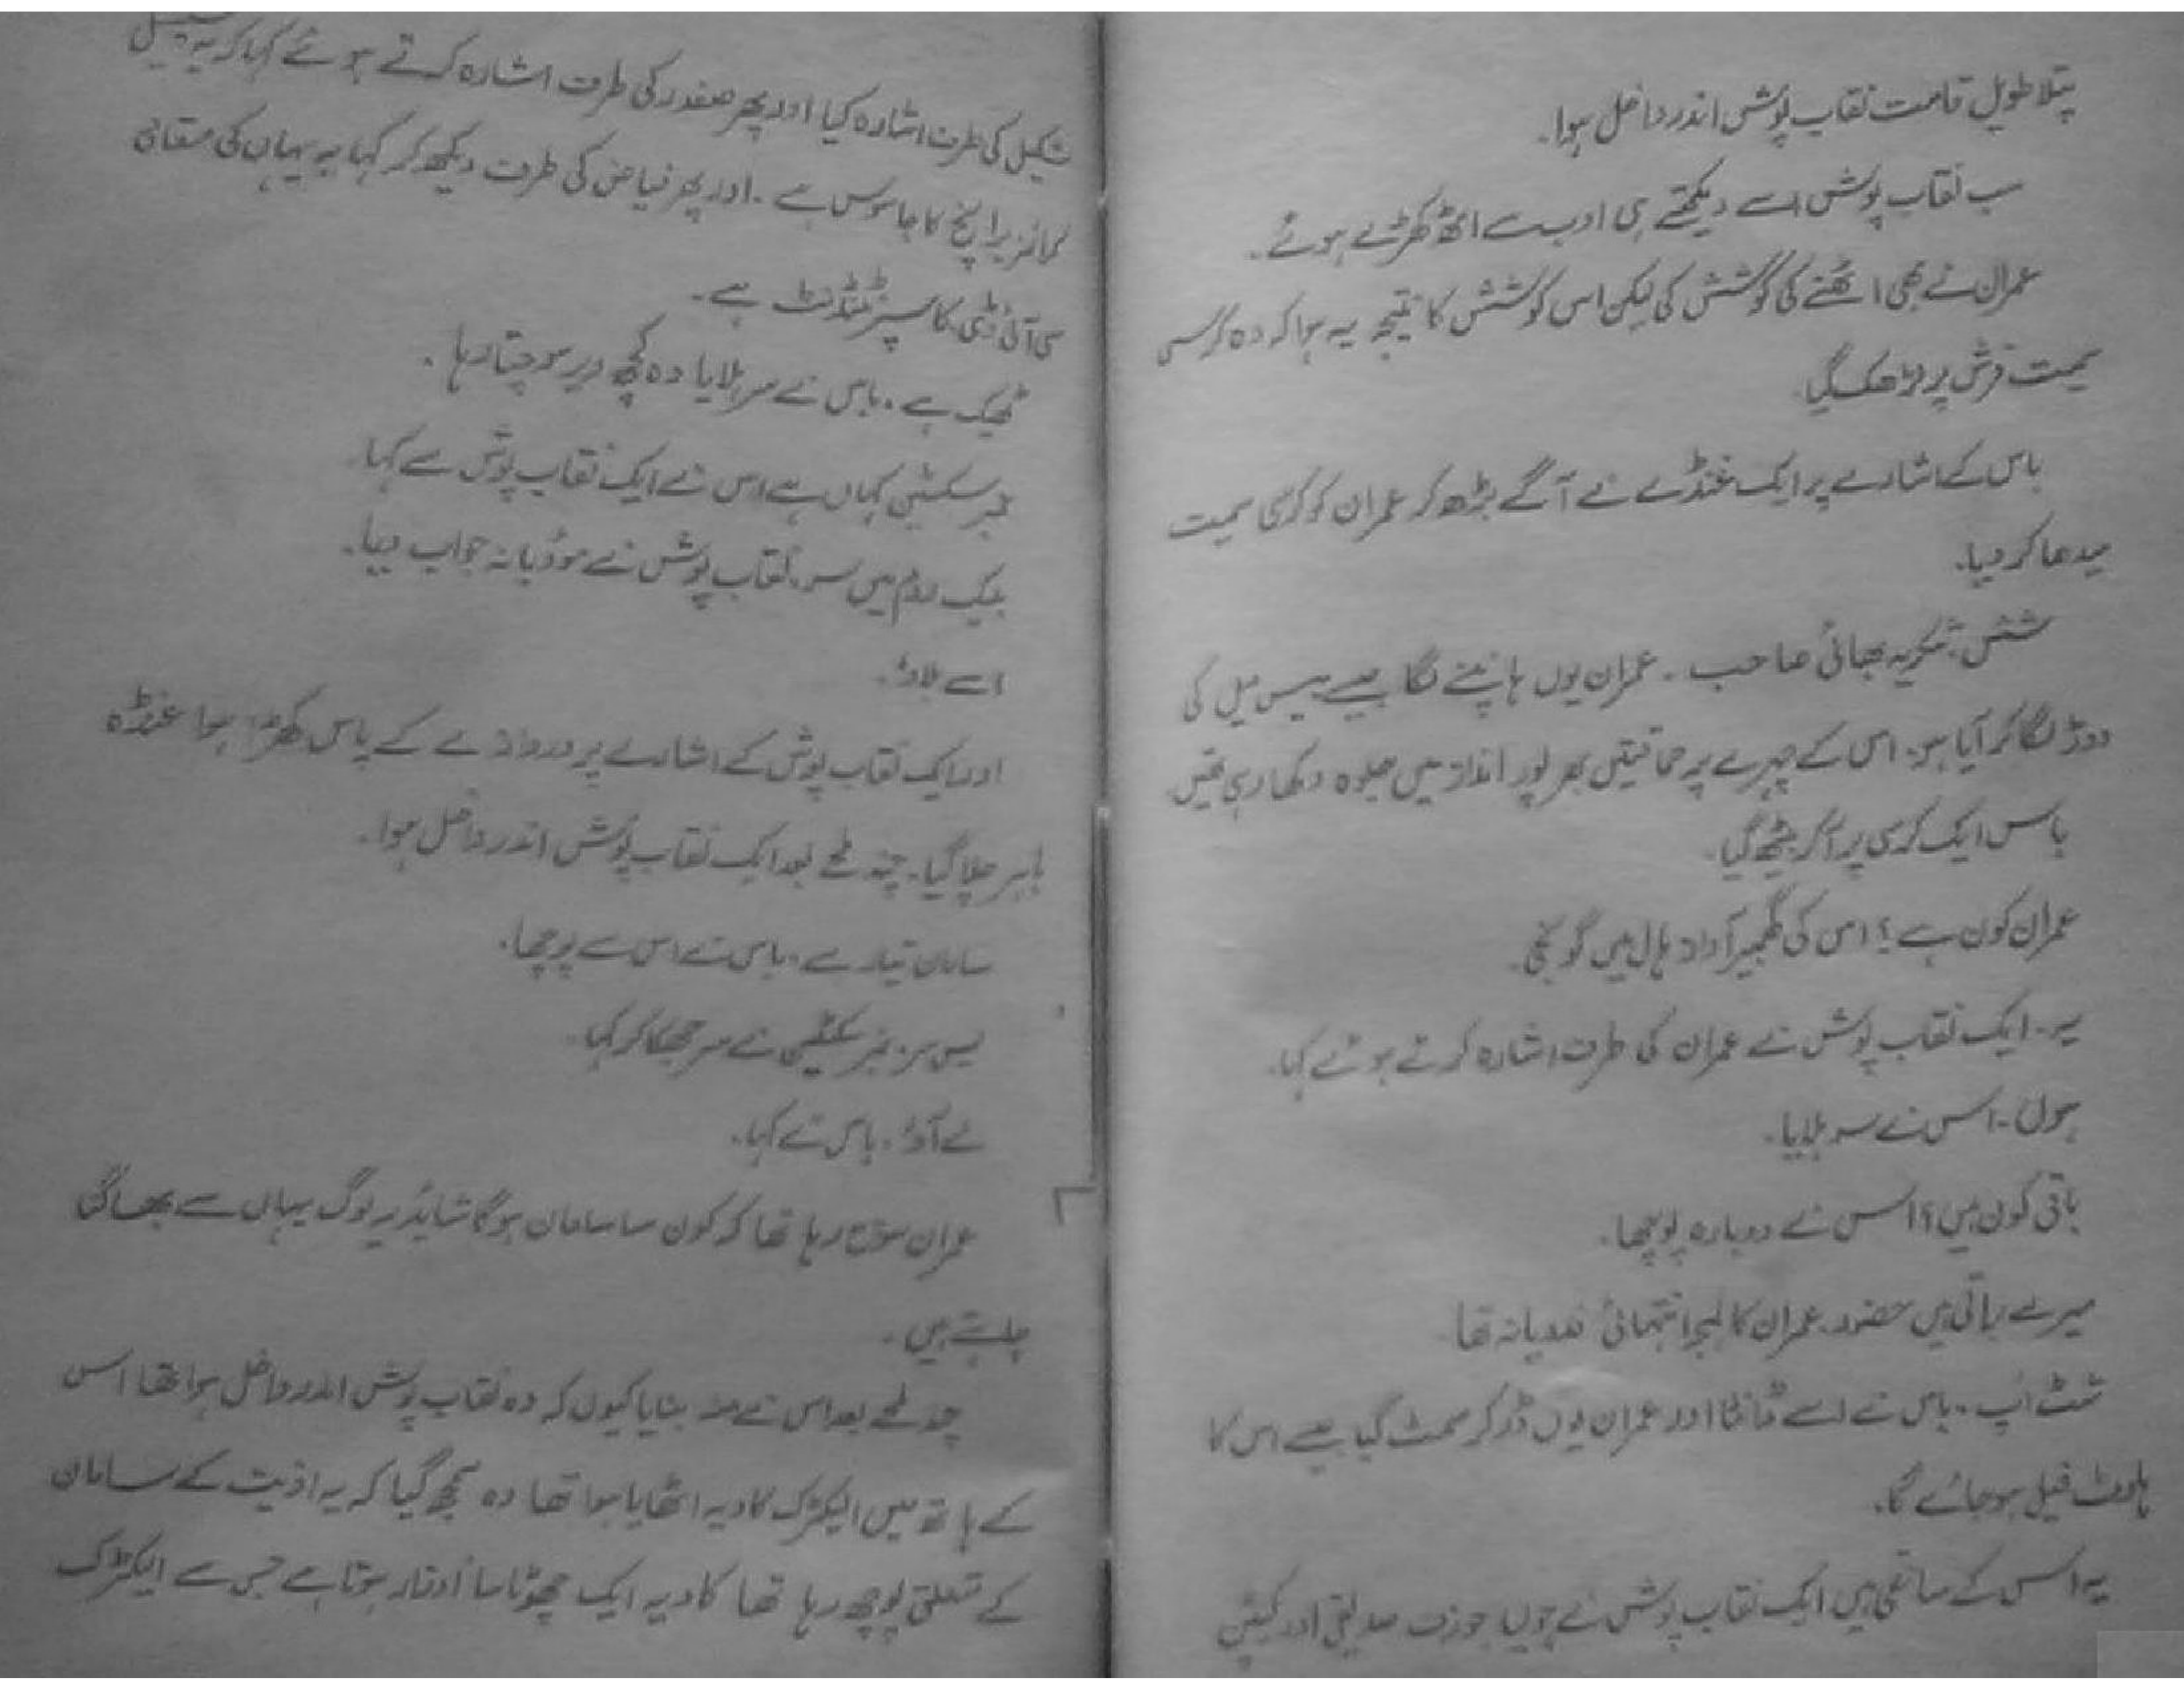 پتلا طویل قامت نقاب پوش اندر داخل ہوا۔
سب نقاب پوش اسے دیکھتے ہی ادب سے اٹھ کھڑے ہوئے۔
عمران نے بھی اٹھنے کی کوشش کی لیکن اس کوشش کا نتیجہ یہ ہوا کہ وہ کرسی
سمیت فرش پر لڑھک گیا
باس کے اشارے پر ایک غنڈے نے آگے بڑھ کر عمران کو کرسی سمیت
سیدھا کر دیا۔
شش شکریہ بھائی صاحب ۔ عمران یوں ہانپنے لگا جیسے بیس میل کی
دوڑ لگا کر آیا ہو۔ اس کے چہرے پر حماقتیں بھر پور انداز میں جلوہ دکھا رہی تھیں
باس ایک کرسی پر آکر بیٹھ گیا۔
عمران کون ہے؟ اس کی گھمبیر آواز ہال میں گونجی۔
یہ ۔ ایک نقاب پوش نے عمران کی طرف اشارہ کرتے ہوئے کہا۔
ہوں ۔ اس نے سر ہلایا۔
باقی کون ہیں؟ اس نے دوبارہ پوچھا۔
میرے براتی ہیں حضور۔ عمران کا لہجہ انتہائی فدویانہ تھا
شٹ اپ ۔ باس نے اسے ڈانٹا اور عمران یوں ڈر کر سمٹ گیا جیسے اس کا
ہارٹ فیل ہو جائے گا۔
یہ اس کے ساتھی ہیں ایک نقاب پوش نے جوزف صدیقی اور کیپٹن
شکیل کی طرف اشارہ کیا اور پھر صفدر کی طرف اشارہ کرتے ہوئے کہا کہ یہ سپیشل
کرائمز برانچ کا جاسوس ہے ۔ اور پھر فیاض کی طرف دیکھ کر کہا یہ یہاں کی مقامی
سی آئی ڈی کا سپرنٹنڈنٹ ہے ۔
ٹھیک ہے ۔ باس نے سر ہلایا وہ کچھ دیر سوچتا رہا ۔
نمبر سکسٹی کہاں ہے اس نے ایک نقاب پوش سے کہا
بلیک روم میں سر۔ نقاب پوش نے مودبانہ جواب دیا۔
اسے بلاؤ۔
اور ایک نقاب پوش کے اشارے پر دروازے کے پاس کھڑا ہوا غنڈہ
باہر چلا گیا۔ چند لمحے بعد ایک نقاب پوش اندر داخل ہوا۔
سامان تیار ہے ۔ باس نے اس سے پوچھا۔
یس سر۔ نمبر سکسٹی نے سر جھکا کر کہا
لے آؤ ۔ باس نے کہا۔
عمران سوچ رہا تھا کہ کون سا سامان ہوگا شاید یہ لوگ یہاں سے بھاگنا
چاہتے ہیں ۔
چند لمحے بعد اس نے منہ بنایا کیوں کہ وہ نقاب پوش اندر داخل ہوا تھا اس
کے ہاتھ میں الیکٹرک کاویہ اٹھایا ہوا تھا وہ سمجھ گیا کہ یہ اذیت کے سامان
کے متعلق پوچھ رہا تھا کاویہ ایک چھوٹا سا اوزار ہوتا ہے جس سے الیکٹرک